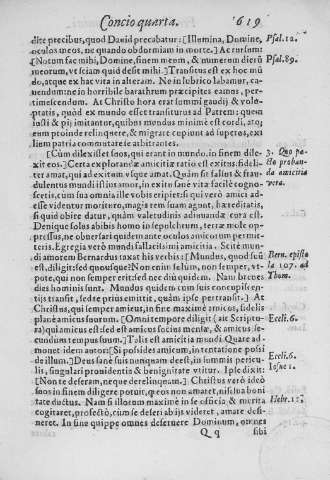 Concio quarta. 619
dite precibus, quod Dauid precabatur: [Illumina, Domine, Psal. 12.
oculos meos, ne quando obdormiam in morte.] Ac rursum:
[Notum fac mihi, Domine, finem meum, & numerum dierū Psal. 89.
meorum, vt sciam quid desit mihi.] Transitus est ex hoc mū
do, atque ex hac vita in aliam. Ne in lubrico labamur, ca-
uendumque ne in horribile barathrum præcipites eamus, per-
timescendum. At Christo hora erat summi gaudij & volu-
ptatis, quòd ex mundo esset transiturus ad Patrem: quem
iusti & pij imitantur, quibus mundus minimè est cordi, atq́;
eum proinde relinquere, & migrare cupiunt ad superos, exi
lium patria commutare se arbitrantes.
[Cùm dilexisset suos, qui erant in mundo, in finem dile- 3. Quo pa-
xit eos.] Certa explorandæ amicitiæ ratio est exitus, fideli- cto proban-
ter amat, qui ad exitum vsque amat. Quàm sit falsus & frau- da amicitia
dulentus mundi istius amor, in exitu sanè vita facilè cogno- vera.
scetis, cùm sua omnia ille vobis eripiet: si qui verò amici ad-
esse videntur morituro, magis rem suam agunt, hæreditatis,
si quid obire datur, quàm valetudinis adiuuandæ cura est.
Denique solos abibis homo in sepulchrum, terræ mole op-
pressus, ne obuersari quidem ante oculos amicorum permit-
teris. Egregia verò mundi fallacissimi amicitia. Scitè mun-
di amorem Bernardus taxat his verbis: [Mundus, quod suū Bern. episto
est, diligit: sed quousque? Non enim semper, ve- la 107. ad
potè, qui non semper erit: sed nec diù quidem. Nam breues Thom.
dies hominis sunt. Mundus quidem cum suis concupiscen-
tijs transit, sed te prius emittit, quàm ipse pertransit.] At
Christus, qui semper amicus, in fine maximè amicus, fidelis
planè amicus suorum. [Omni tempore diligit (ait Scriptu- Eccli. 6.
ra) qui amicus est: sed est amicus socius mensæ, & amicus se-
cundum tempus suum.] Talis est amicitia mundi. Quare ad-
monet idem autor: [Si possides amicum, in tentatione possi
de illum.] Deus sanè suis nunquam deest, in summis pericu- Eccli. 6.
lis, singulari prouidentia & benignitate vtitur. Ipse dixit: Iosue 1.
[Non te deseram, neque derelinquam.] Christus verò ideò
suos in finem diligere potuit, quos non amaret, nisi sua boni
tate ductus. Nam si illorum maximè in se officia & merita Hebr. 13.
cogitaret, profectò, cùm se deseri ab ijs videret, amare desi-
neret. In fine quippe omnes deseruere Dominum, omnes
Q q sibi